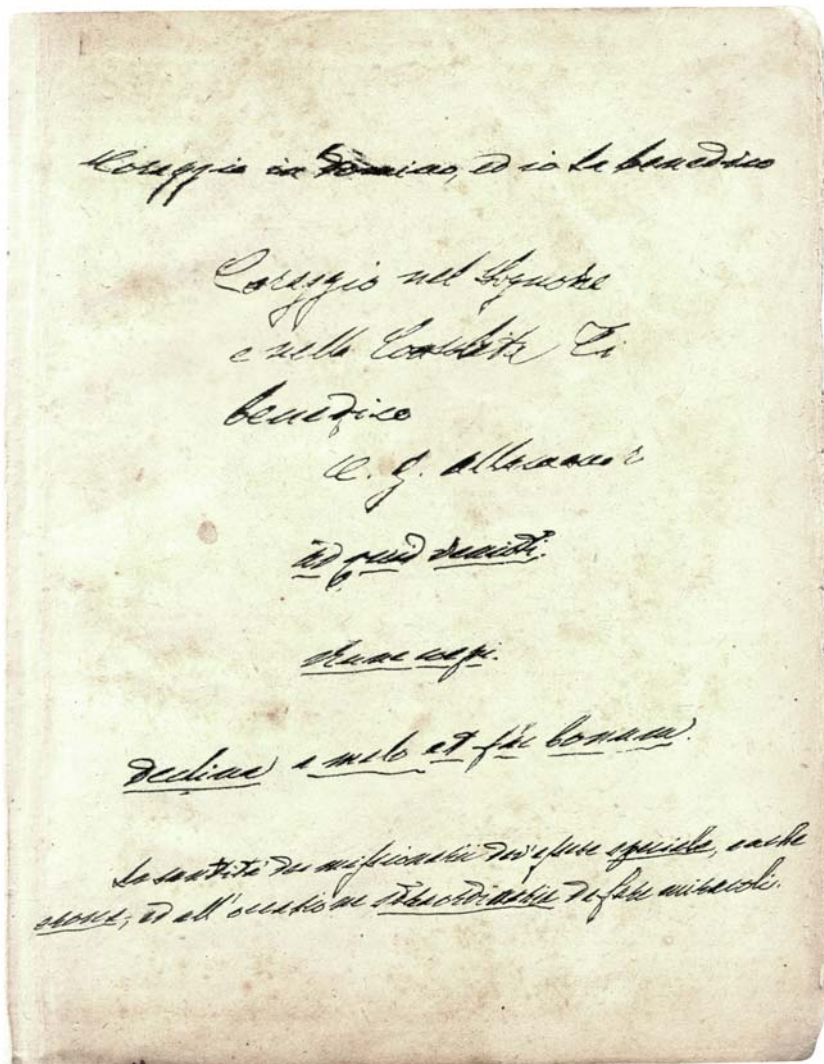 Coraggio in Domino, ed io La benedico
Coraggio nel Signore
e nella Consolata Ti
benedico
C. G. Allamano
ad quid venisti.
Nunc coepi.
Declina a malo et fac bonum.
La santità dei missionarii dev'essere speciale, anche
eroica, ed all'occasione straordinaria da fare miracoli.